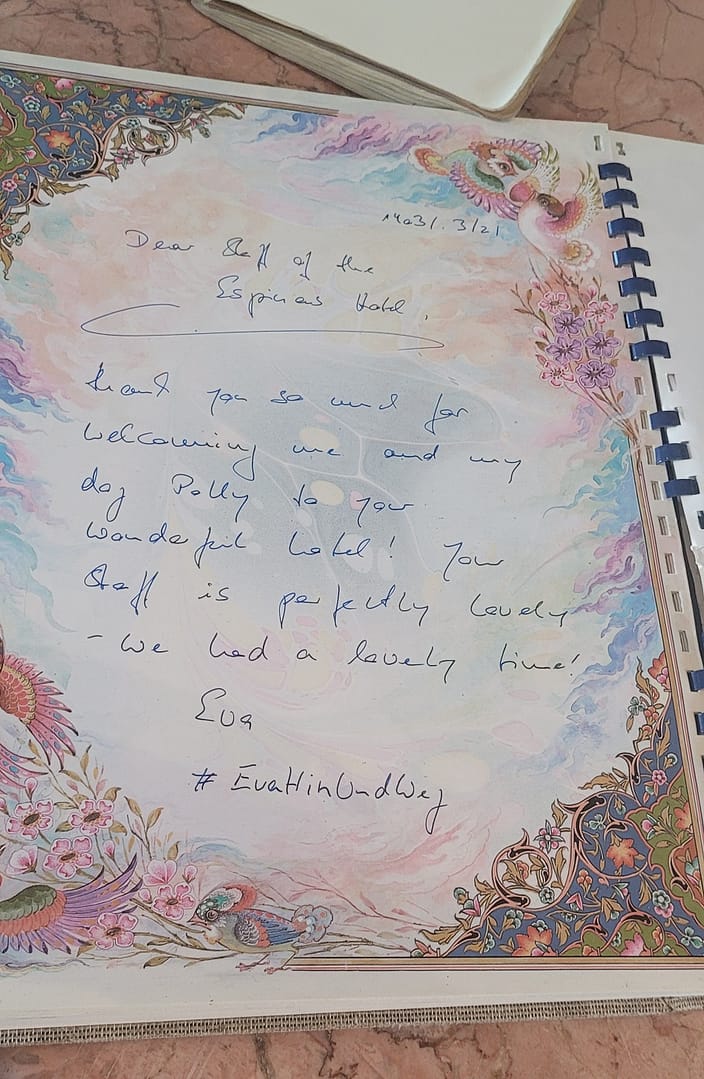 1403/.3/21
Dear Staff of the
Espinas Hotel,
thank you so much for
welcoming me and my
dog Polly to your
wonderful hotel! Your
Staff is perfectly lovely
- we had a lovely time!
Eva
# EvaHinUndWeg